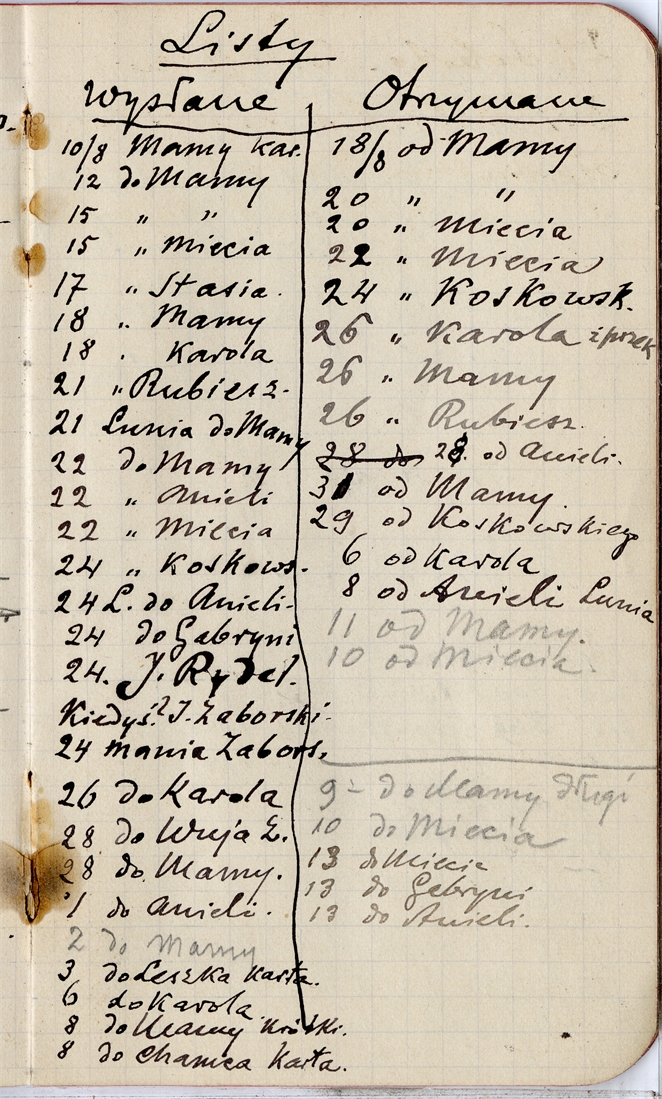 Listy
Wysłane
10/8 Mamy kar.
12 do Mamy
15 " "
15 " Miecia
17 " Stasia.
18 " Mamy
18 . Karola
21 " Rubiesz.
21 Lunia do Mamy
22 do Mamy
22 " Anieli
22 " Miecia
24 " Koskows.
24 L. do Anieli.
24 do Gabryni
24. J. Rydel.
Kiedyś? J. Zaborski.
24 Mania Zabors.
26 do Karola
28 do Wuja
28 do Mamy.
1 do Anieli.
2 do Mamy
3 do Leszka karta.
6 do Karola
8 do Mamy krótki.
8 do Chamca karta.
Otrzymane
18/8 od Mamy
20 " "
20 " Miecia
22 " Miecia
24 " Koskowsk.
26 " Karola
26 " Mamy
26 " Rubiesz.
28 do 28. od Anieli.
31 od Mamy.
29 od Koskowskiego
6 od Karola
8 od Anieli Lunia
11 od Mamy.
10 od Miecia.
9 - do Mamy długi
10 do Miecia
13 do Miecia
13 do Gabryni
13 do Anieli.